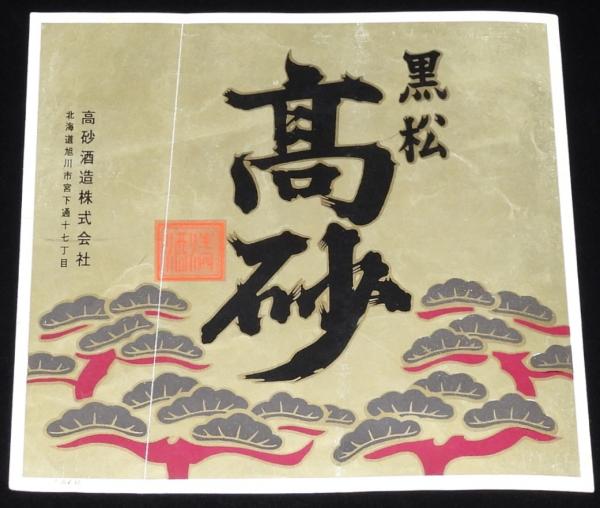 黒松
髙砂
高砂酒造株式会社
北海道旭川市宮下通十七丁目